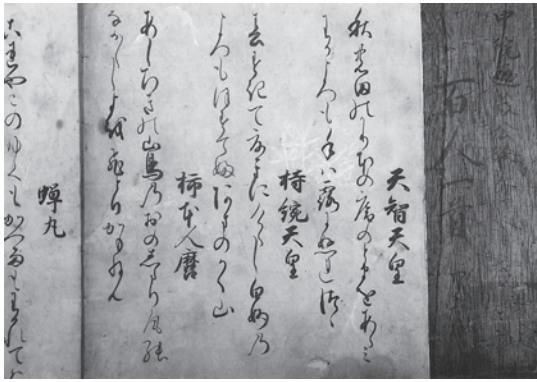 百人一首
天智天皇
秋の田のかりほの廬のとまをあらミ
わかころも手ハ露にぬれつゝ
持統天皇
春すきて夏きにけらし白妙乃
ころもほすてふあまのかく山
柿本人麿
あしひきの山鳥乃おのしたり尾の
なか〳〵し夜を独りかもねん
蝉丸
これやこのゆくもかへるもわかれてハ